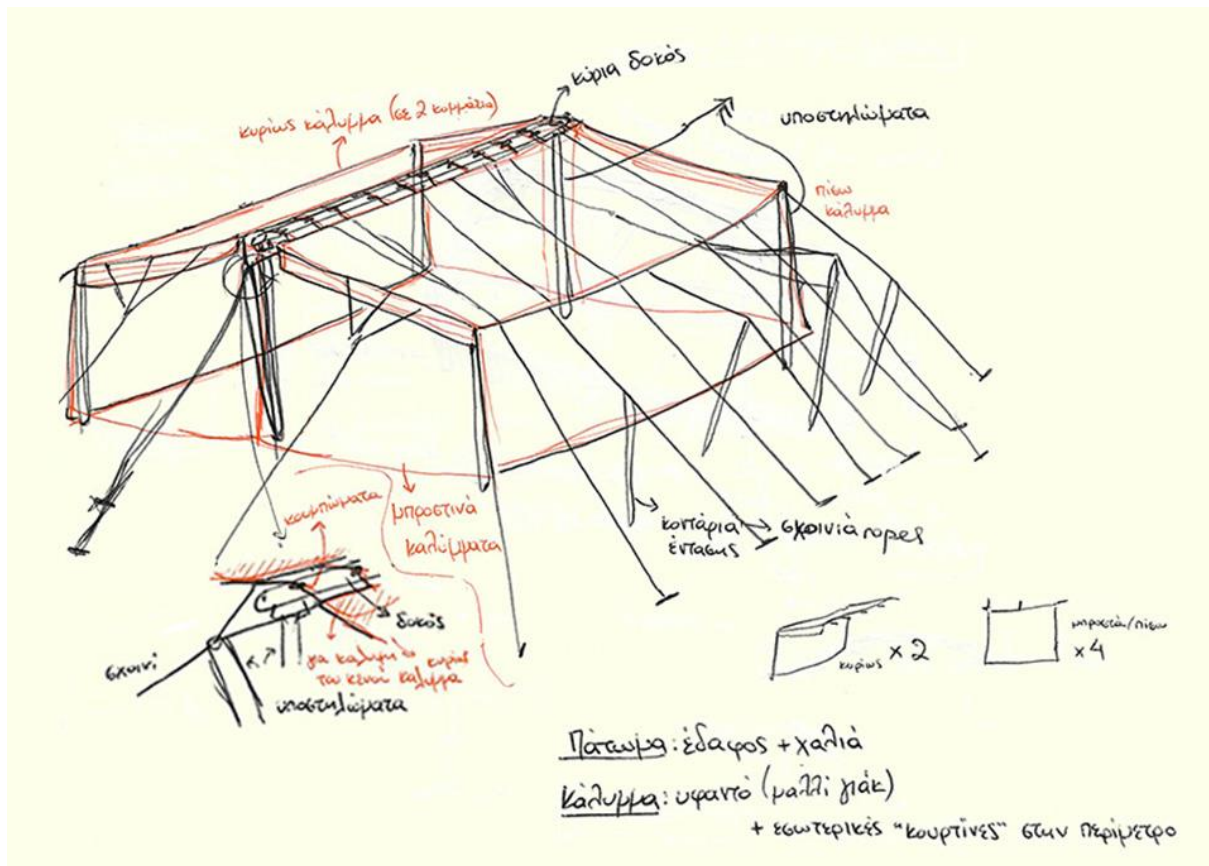 κύρια δοκός
κυρίως κάλυμμα (σε 2 κομμάτια)
υποστηλώματα
πίσω
κάλυμμα
κουμπώματα
μπροστινά
καλύμματα
κοντάρια
έντασης
σχοινιά ropes
δοκός
σχοινί
για κάλυψη
του κενού
κυρίως
κάλυμμα
υποστηλώματα
κυρίως x 2
μπροστά/πίσω
x 4
Πάτωμα: έδαφος + χαλιά
Κάλυμμα: υφαντό (μαλλί γιάκ)
+ εσωτερικές "κουρτίνες" στην περίμετρο